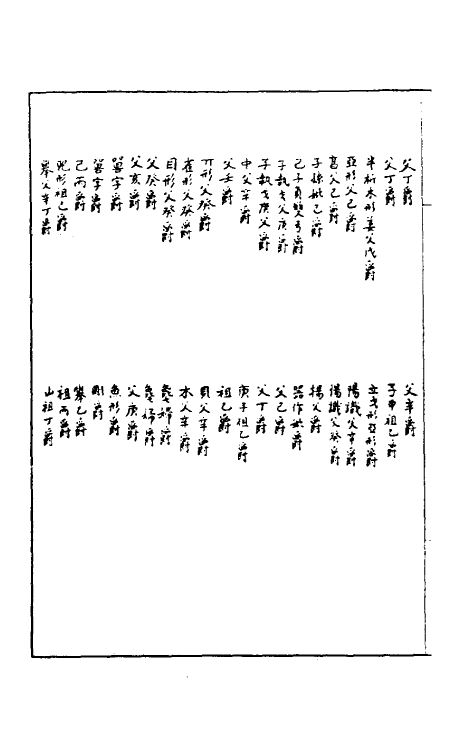 父丁爵
父丁爵
半析木形姜父戊爵
亞形父己爵
父己爵
子孫妣己爵
己子負雙弓爵
子執戈父庚爵
子執戈庚父爵
中父辛爵
父壬爵
丌形父癸爵
雀形父癸爵
目形父癸爵
父癸爵
父亥爵
字爵
字爵
己丙爵
兕形祖己爵
舉父辛丁爵
父辛爵
子申祖乙爵
立戈形亞形爵
陽識父辛爵
陽識父癸爵
揚父爵
器作妣爵
父己爵
父丁爵
庚子祖乙爵
祖乙爵
貝父辛爵
木父辛爵
婦爵
婦爵
父庚爵
魚形爵
剛爵
舉己爵
祖丙爵
山祖丁爵